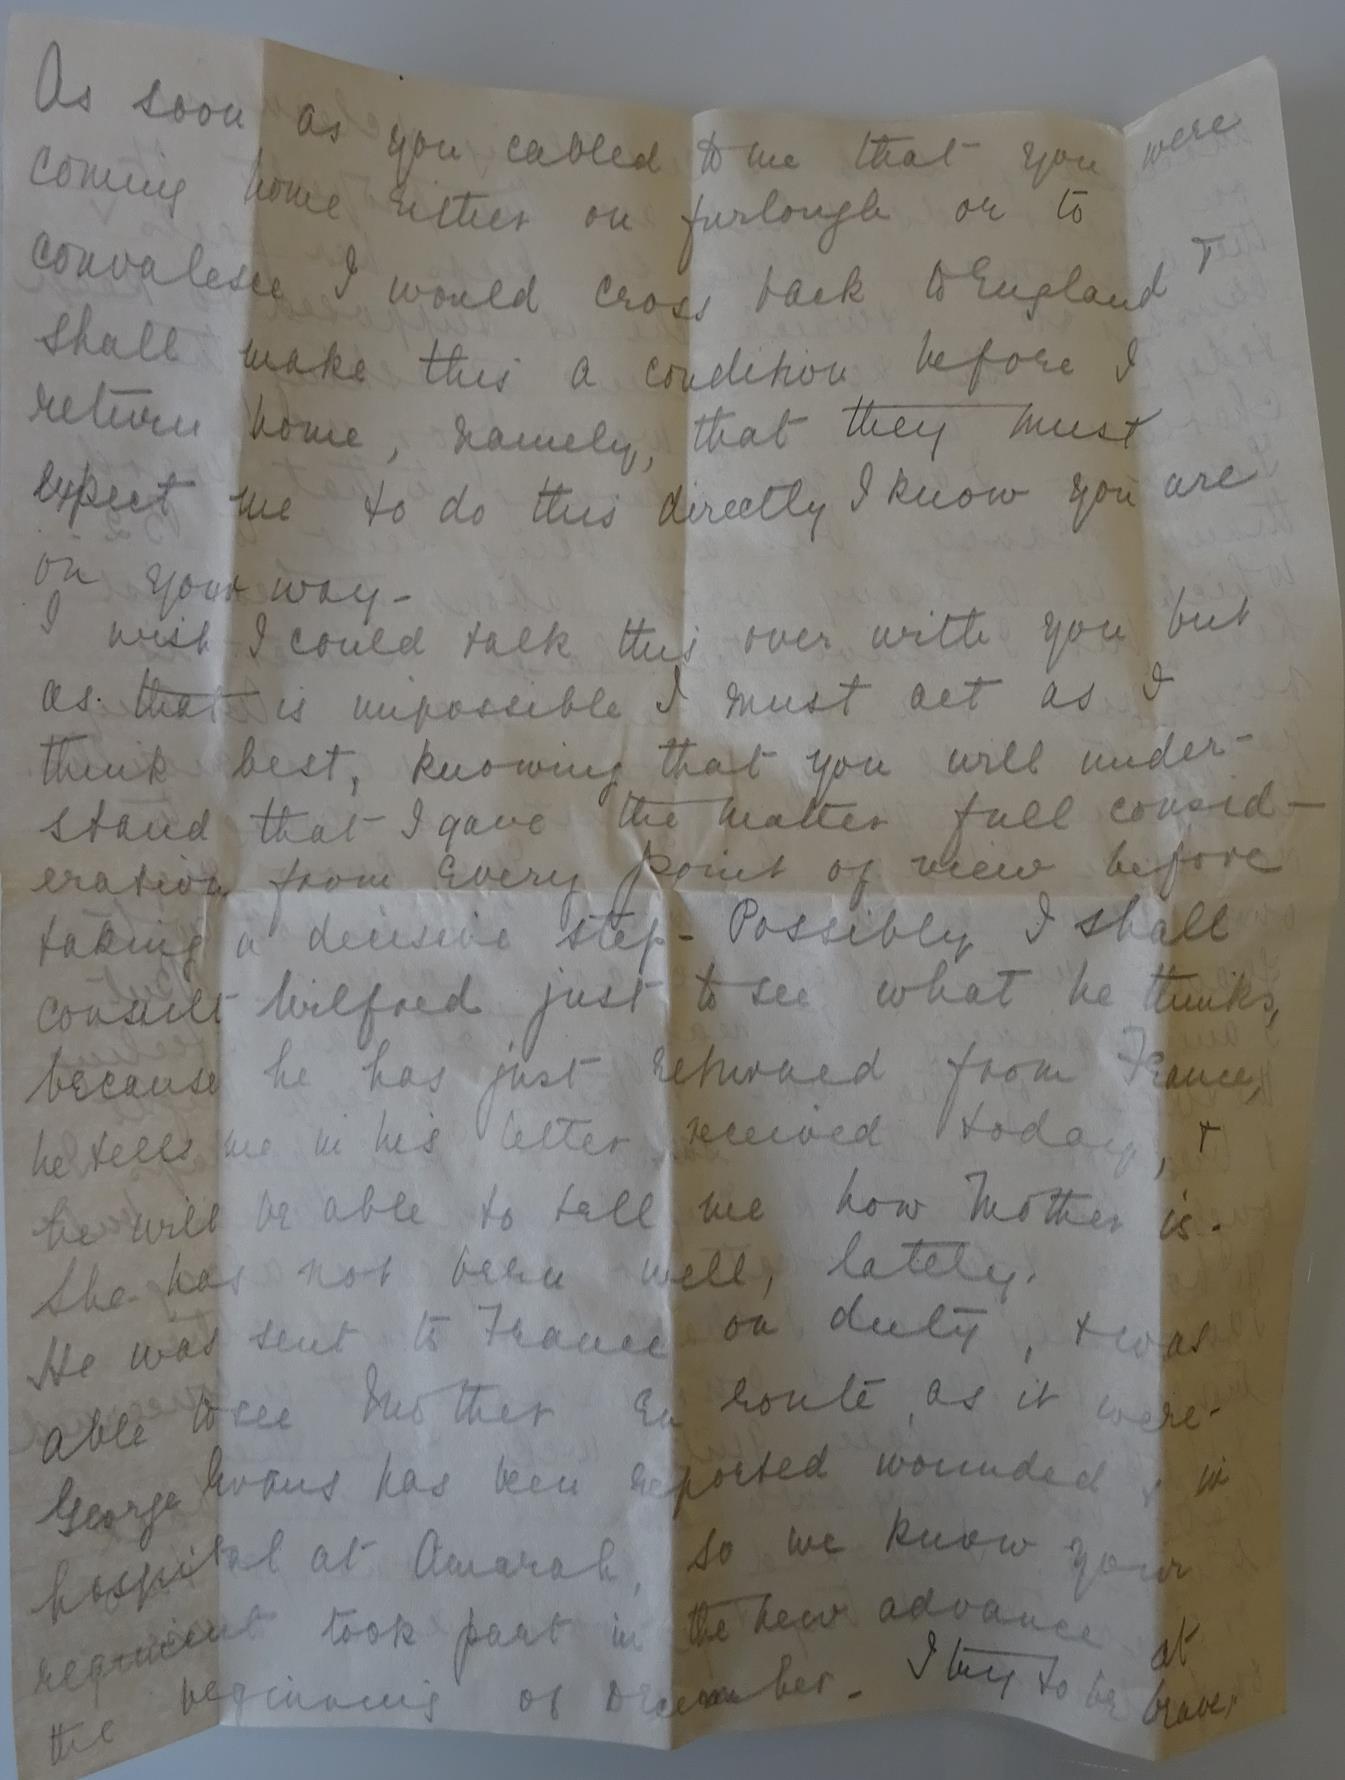 As soon as you cabled to me that you were
coming home either on furlough or to
convalesce I would cross back to England +
shall make this a condition before I
return home, namely, that they must
expect me to do this directly I know you are
on your way -
I wish I could talk this over with you but
as that is impossible I must act as I
think best, knowing that you will under-
stand that I gave the matter full consid-
eration from every point of view before
taking a decisive step - Possibly I shall
consult Wilfred just to see what he thinks,
because he has just returned from France,
he tells me in his letter received today, +
he will be able to tell me how Mother is -
She has not been well, lately.
He was sent to France on duty, + was
able to see Mother en route, as it were -
George Evans has been reported wounded, in
hospital at Amarah, so we know your
regiment took part in the new advance at
the beginning of December - I try to be brave,